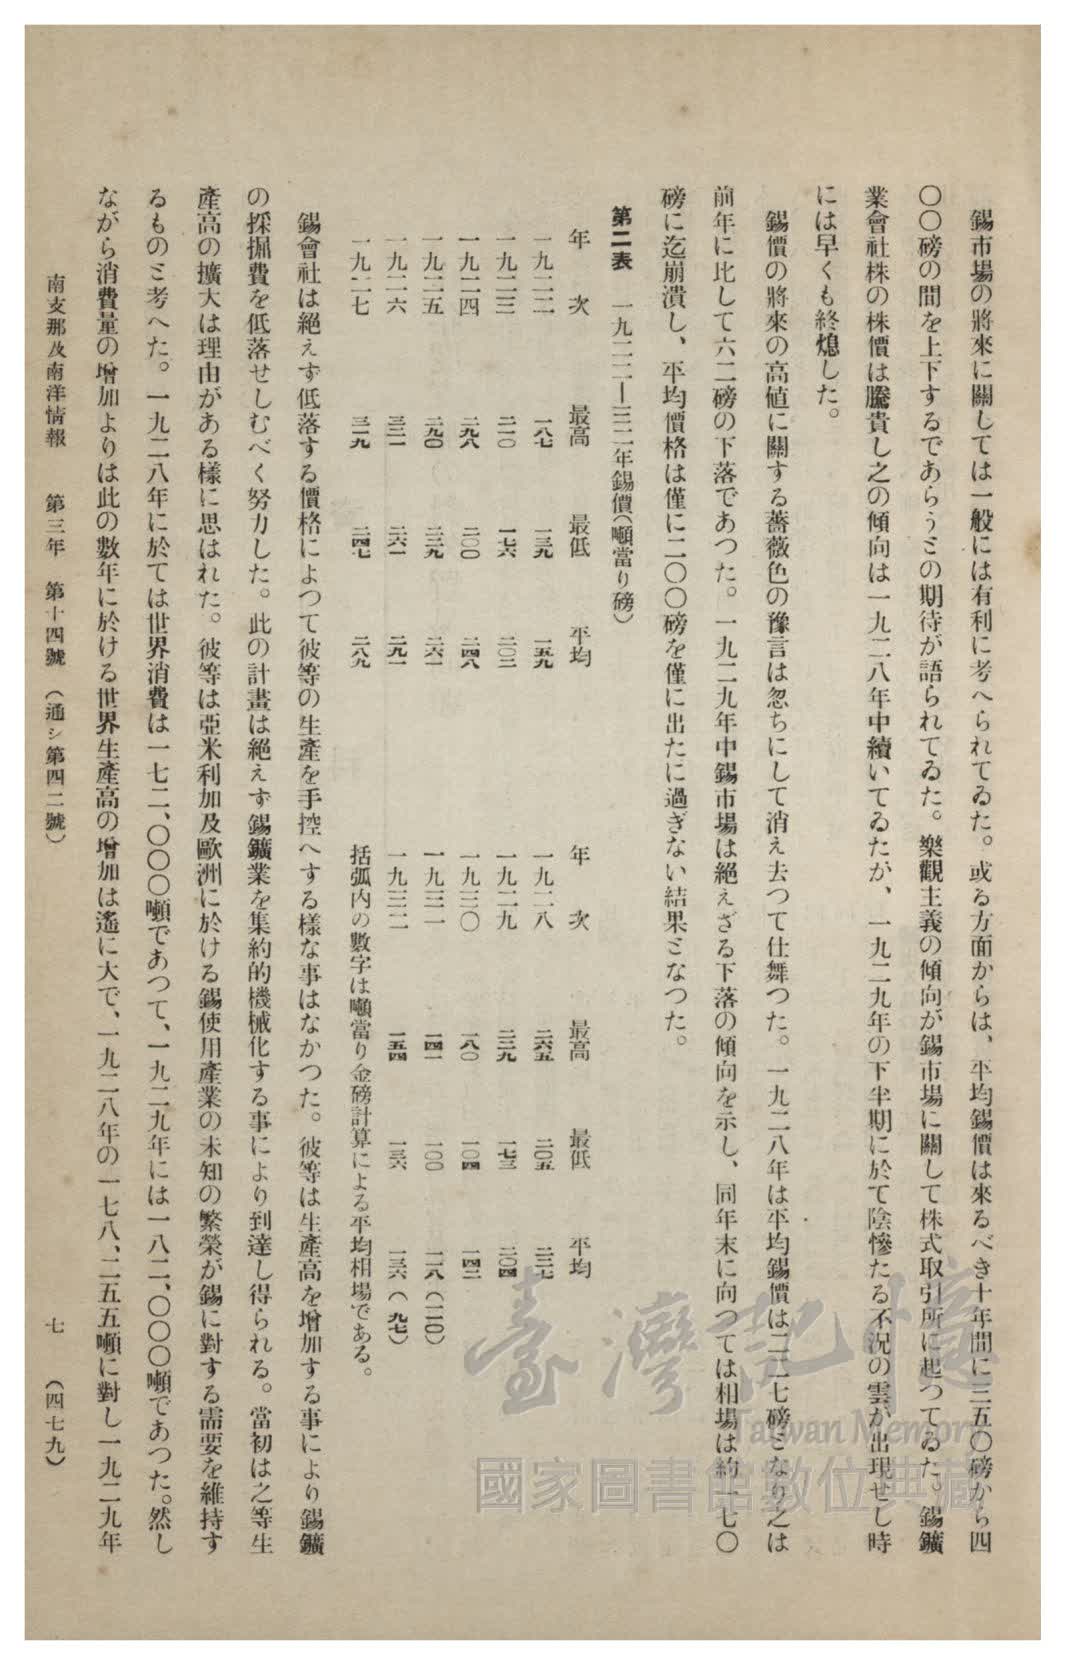 錫市場の將來に關しては一般には有利に考へられてゐた。或る方面からは、平均錫價は來るべき十年間に三五〇磅から四
〇〇磅の間を上下するであらうとの期待が語られてゐた。樂觀主義の傾向が錫市場に關して株式取引所に起つてゐた。錫鑛
業會社株の株價は騰貴し之の傾向は一九二八年中續いてゐたが、一九二九年の下半期に於て陰慘たる不況の雲が出現せし時
には早くも終熄した。
錫價の將來の高値に關する薔薇色の豫言は忽ちにして消え去つて仕舞つた。一九二八年は平均錫價は二二七磅となり之は
前年に比して六二磅の下落であつた。一九二九年中錫市場は絕えざる下落の傾向を示し、同年末に向つては相場は約一七〇
磅に迄崩潰し、平均價格は僅に二〇〇磅を僅に出たに過ぎない結果となつた。
第二表　一九二二—三二年錫價(噸當り磅)
年次　最高　最低　平均　年次　最高　最低　平均
一九二二　一八七　一三九　一五九　一九二八　二六五　二〇五　二二七
一九二三　二一〇　一七六　二〇二　一九二九　二二九　一七三　二〇四
一九二四　二九八　二〇〇　二四八　一九三〇　一八〇　一〇四　一四二
一九二五　二九〇　二二九　二六一　一九三一　一四一　一〇〇　一一八(一一〇)
一九二六　三二一　二六一　二九一　一九三二　一五四　一三六　一三六(九七)
一九二七　三一九　二四七　二八九　括弧內の數字は噸當り金磅計算による平均相場である。
錫會社は絕えず低落する價格によつて彼等の生產を手控へする樣な事はなかつた。彼等は生產高を增加する事により錫鑛
の採掘費を低落せしむべく努力した。此の計畫は絕えず錫鑛業を集約的機械化する事により到達し得られる。當初は之等生
產高の擴大は理由がある樣に思はれた。彼等は亞米利加及歐洲に於ける錫使用產業の未知の繁榮が錫に對する需要を維持す
るものと考へた。一九二八年に於ては世界消費は一七二、〇〇〇噸であつて、一九二九年には一八二、〇〇〇噸であつた。然し
ながら消費量の增加よりは此の數年に於ける世界生產高の增加は遙に大で、一九二八年の一七八、二五五噸に對し一九二九年
南支那及南洋情報　第三年　第十四號　(通シ第四二號)　七　(四七九)
臺灣記憶
Taiwan Memory
國家圖書館數位典藏